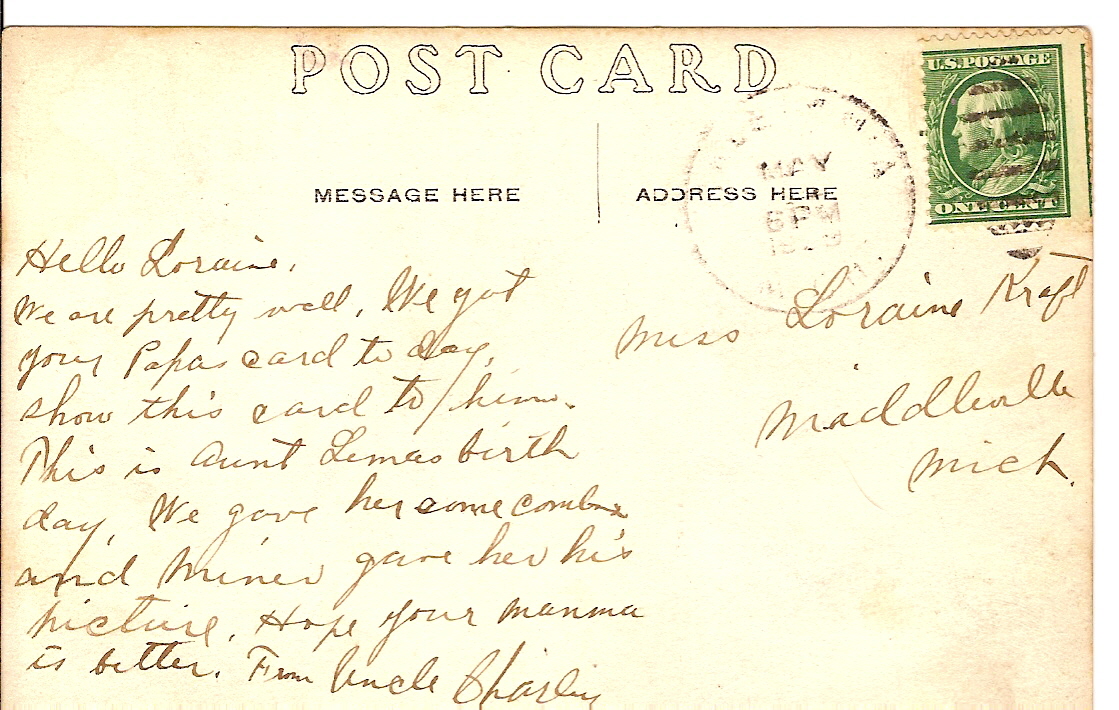 POST CARD
U.S. POSTAGE
MESSAGE HERE
ADDRESS HERE
MAY
6 PM
ONE CENT
Hello Loraine,
We are pretty well, We got
your Papas card to day,
show this card to him.
This is Aunt Lemas birth
day, We gave her some combs
and Miner gave her his
picture. Hope your mamma
is better. From Uncle Charley
Miss Loraine Kraft
Middleville
Mich.